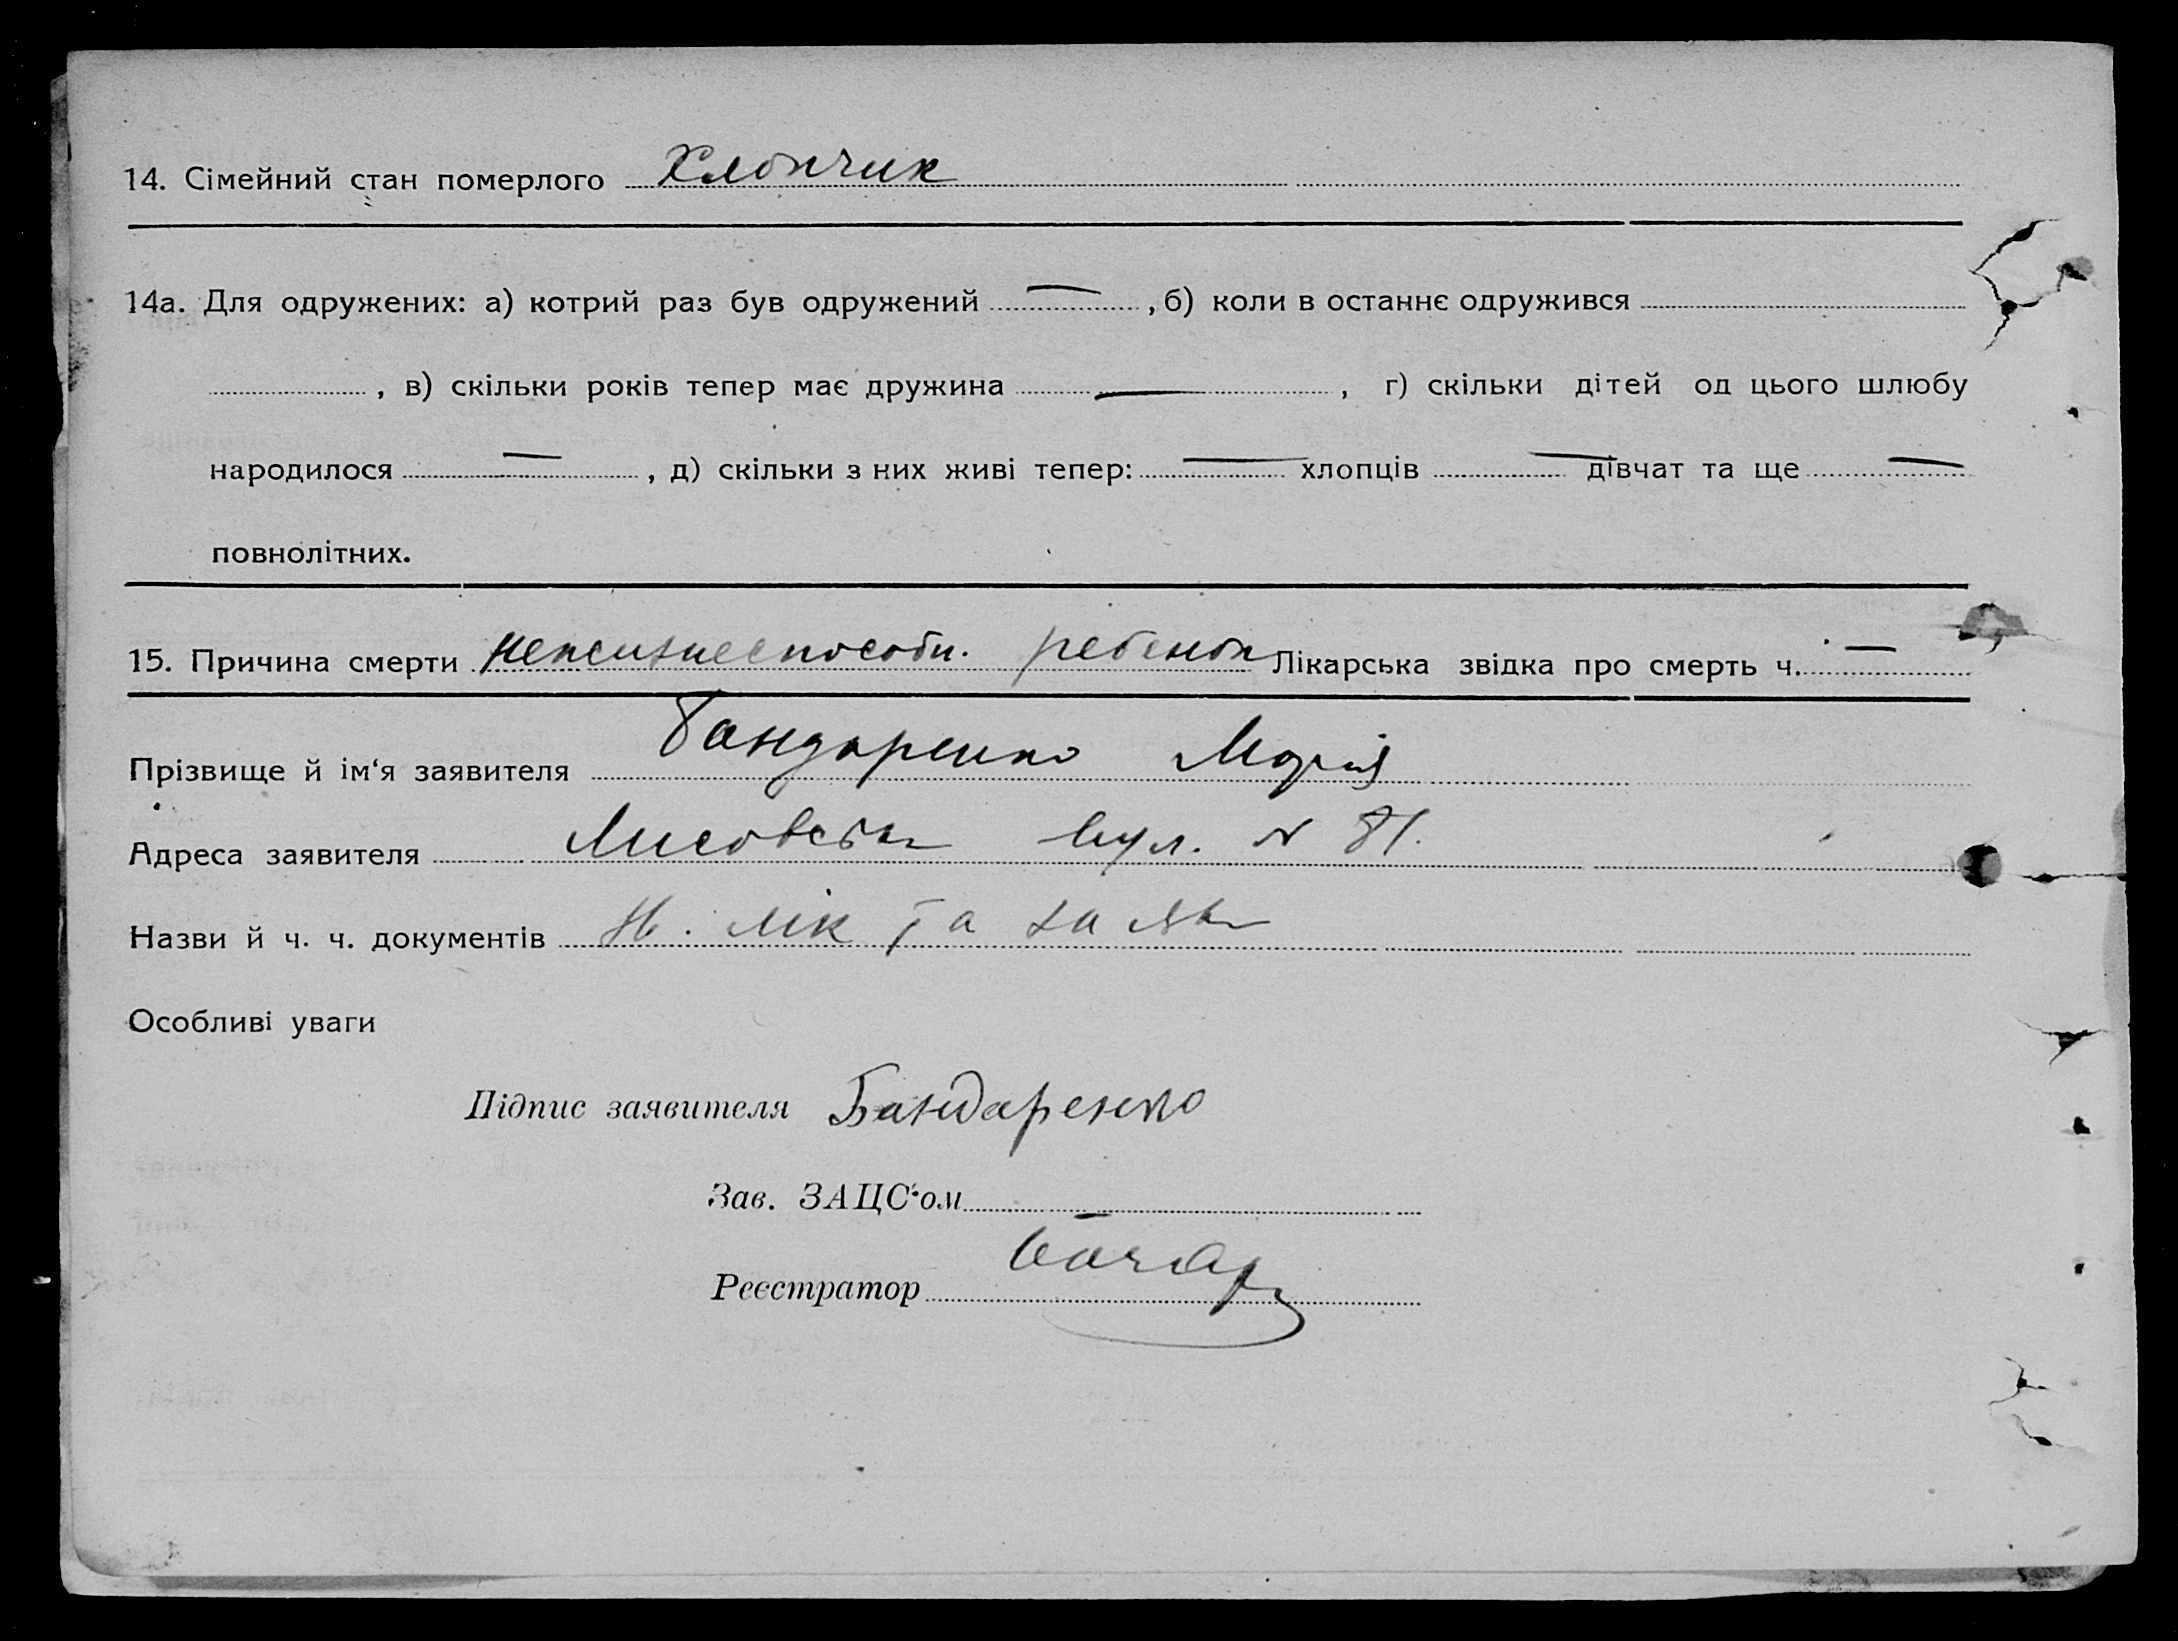 14. Сімейний стан померлого Хлопчик
14а. Для одружених: а) котрий раз був одружений — , б) коли в останнє одружився
, в) скільки років тепер має дружина — , г) скільки дітей од цього шлюбу
народилося — , д) скільки з них живі тепер: — хлопців — дівчат та ще —
повнолітних.
15. Причина смерти нежизнеспособн. ребенок Лікарська звідка про смерть ч. —
Прізвище й ім‘я заявителя Бандаренко Марія
Адреса заявителя вул. N 81.
Назви й ч. ч. документів лік та
Особливі уваги
Підпис заявителя Бандаренко
Зав. ЗАЦС‘ом —
Реєстратор